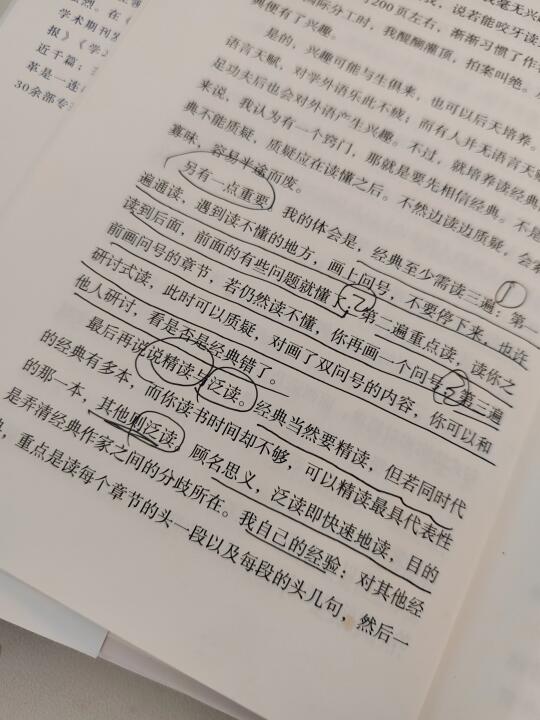 烈。在《
学术期刊发
报》《学
近千篇;
革是一连
30余部专
200页左右,渐渐习惯了作
国际分工时,我醍醐灌顶,拍案叫绝。
则便有了兴趣。
是的,兴趣可能与生俱来,也可以后天培养。
语言天赋,对学外语乐此不疲;而有人并无语言天赋
足功夫后也会对外语产生兴趣。不过,就培养读经典的
来说,我认为有一个窍门,那就是要先相信经典。不是
典不能质疑,质疑应在读懂之后。不然边读边质疑,会索
寡味,容易半途而废。
另有一点重要,我的体会是,经典至少需读三遍:第一
①
遍通读,遇到读不懂的地方,画上问号,不要停下来,也许
读到后面,前面的有些问题就懂了;第二遍重点读,读你之
②
前画问号的章节,若仍然读不懂,你再画一个问号;第三遍
③
研讨式读,此时可以质疑,对画了双问号的内容,你可以和
他人研讨,看是否是经典错了。
最后再说说精读与泛读。经典当然要精读,但若同时代
的经典有多本,而你读书时间却不够,可以精读最具代表性
的那一本,其他则泛读。顾名思义,泛读即快速地读,目的
是弄清经典作家之间的分歧所在。我自己的经验:对其他经
典,重点是读每个章节的头一段以及每段的头几句,然后一